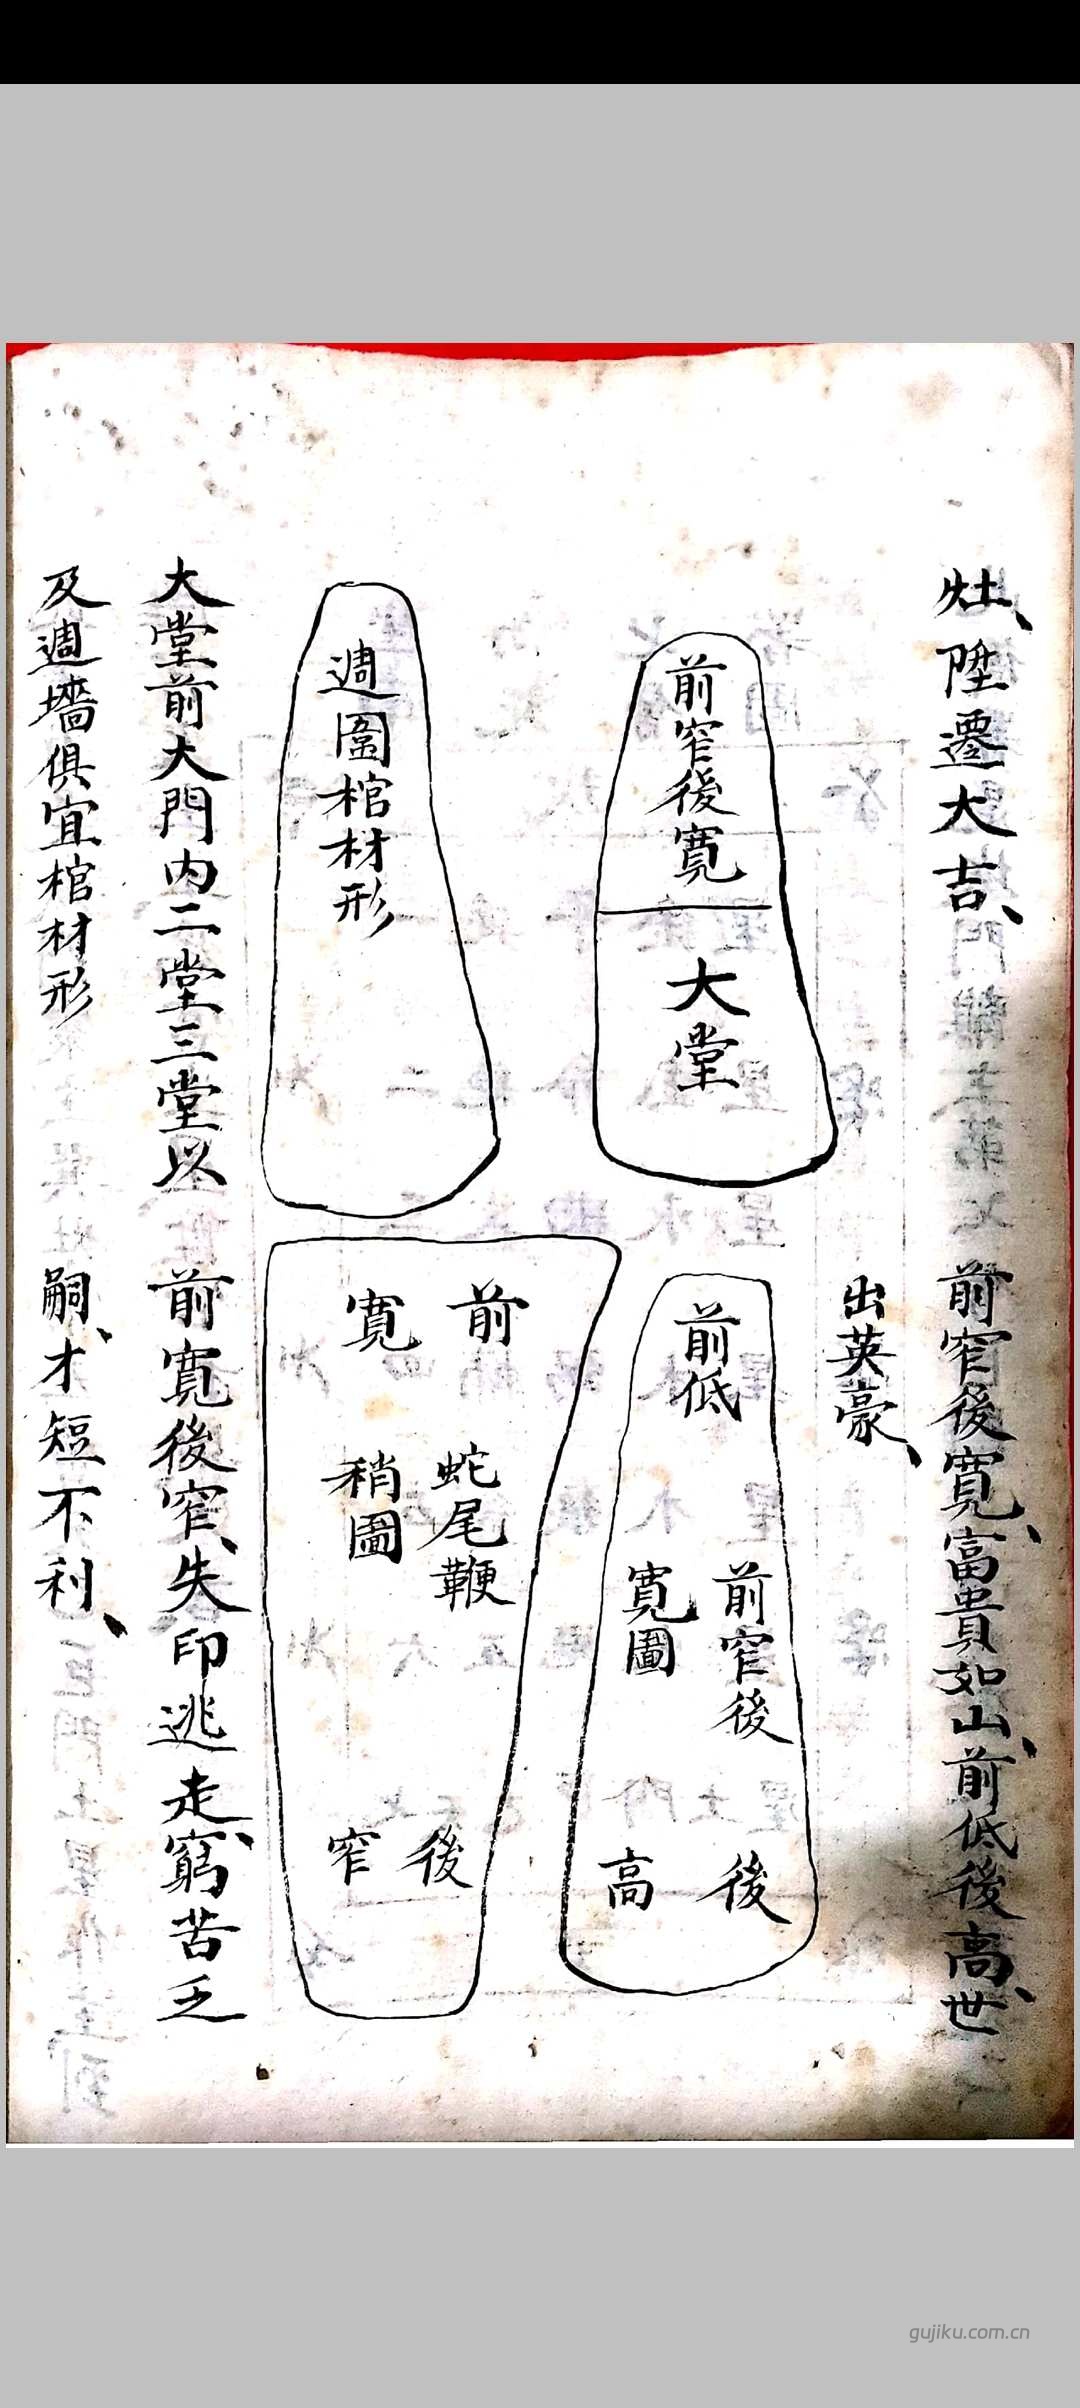 灶、陞遷大吉、
前窄後寬
大堂
週圍棺材形
大堂前大門内二堂三堂以
及週墻俱宜棺材形
前窄後寬、富貴如山、前低後高、世
出英豪、
前低
前窄後
寬圖
後高
前寬
蛇尾鞭
稍圖
後窄
前寬後窄、失印逃走、窮苦乏
嗣、才短不利、
gujiku.com.cn